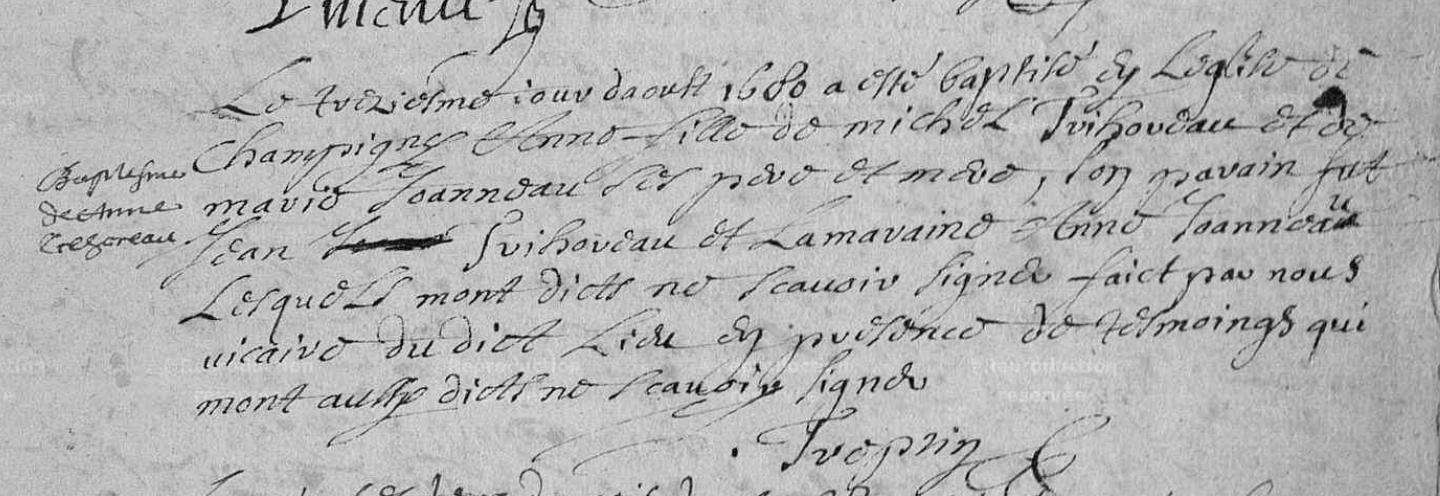 Le treziesme jour daoust 1680 a esté baptisé en Leglise de
Champigne Anne fille de michel Trihoreau et de
marie Joanneau ses pere et mere, son parain fut
Jean Trihoreau et Lamaraine Anne Joanneau
Lesquels mont dicts ne scauoir signer faict par nous
uicaire du dict Lieu en presence de tesmoings qui
mont aussy dicts ne scauoir signer
Baptesme
de Anne